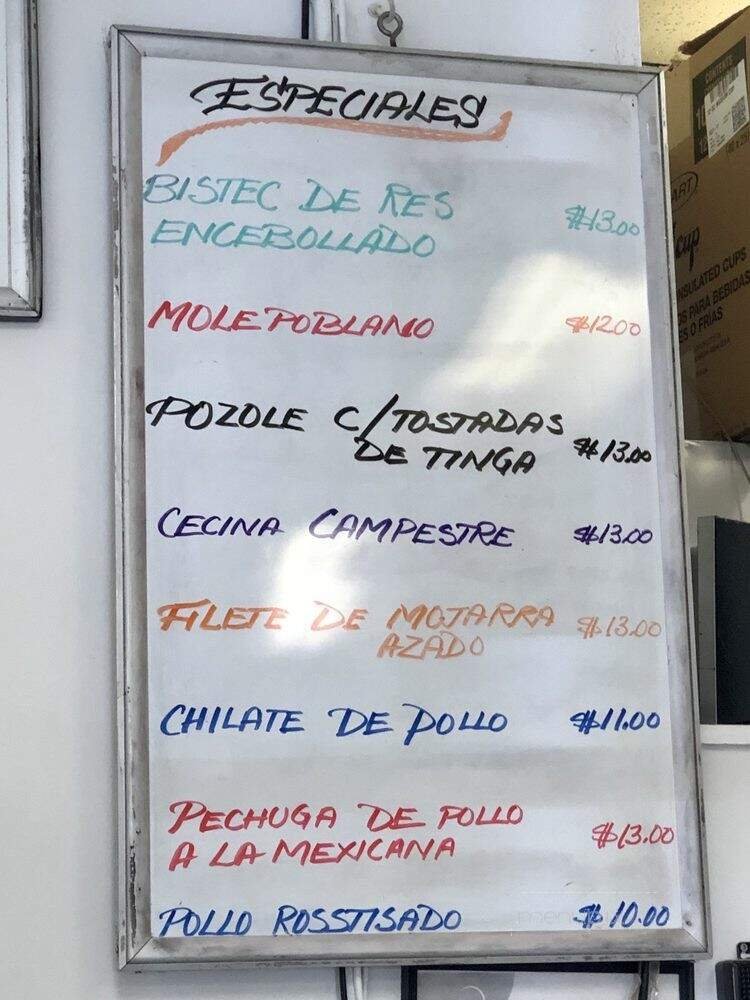 ESPECIALES
BISTEC DE RES
ENCEBOLLADO $13.00
MOLE POBLANO $12.00
POZOLE C/TOSTADAS
DE TINGA $13.00
CECINA CAMPESTRE $13.00
FILETE DE MOJARRA
AZADO $13.00
CHILATE DE POLLO $11.00
PECHUGA DE POLLO
A LA MEXICANA $13.00
POLLO ROSSTISADO $10.00
CONTENTS
ART
cup
INSULATED CUPS
PARA BEBIDAS
O FRIAS